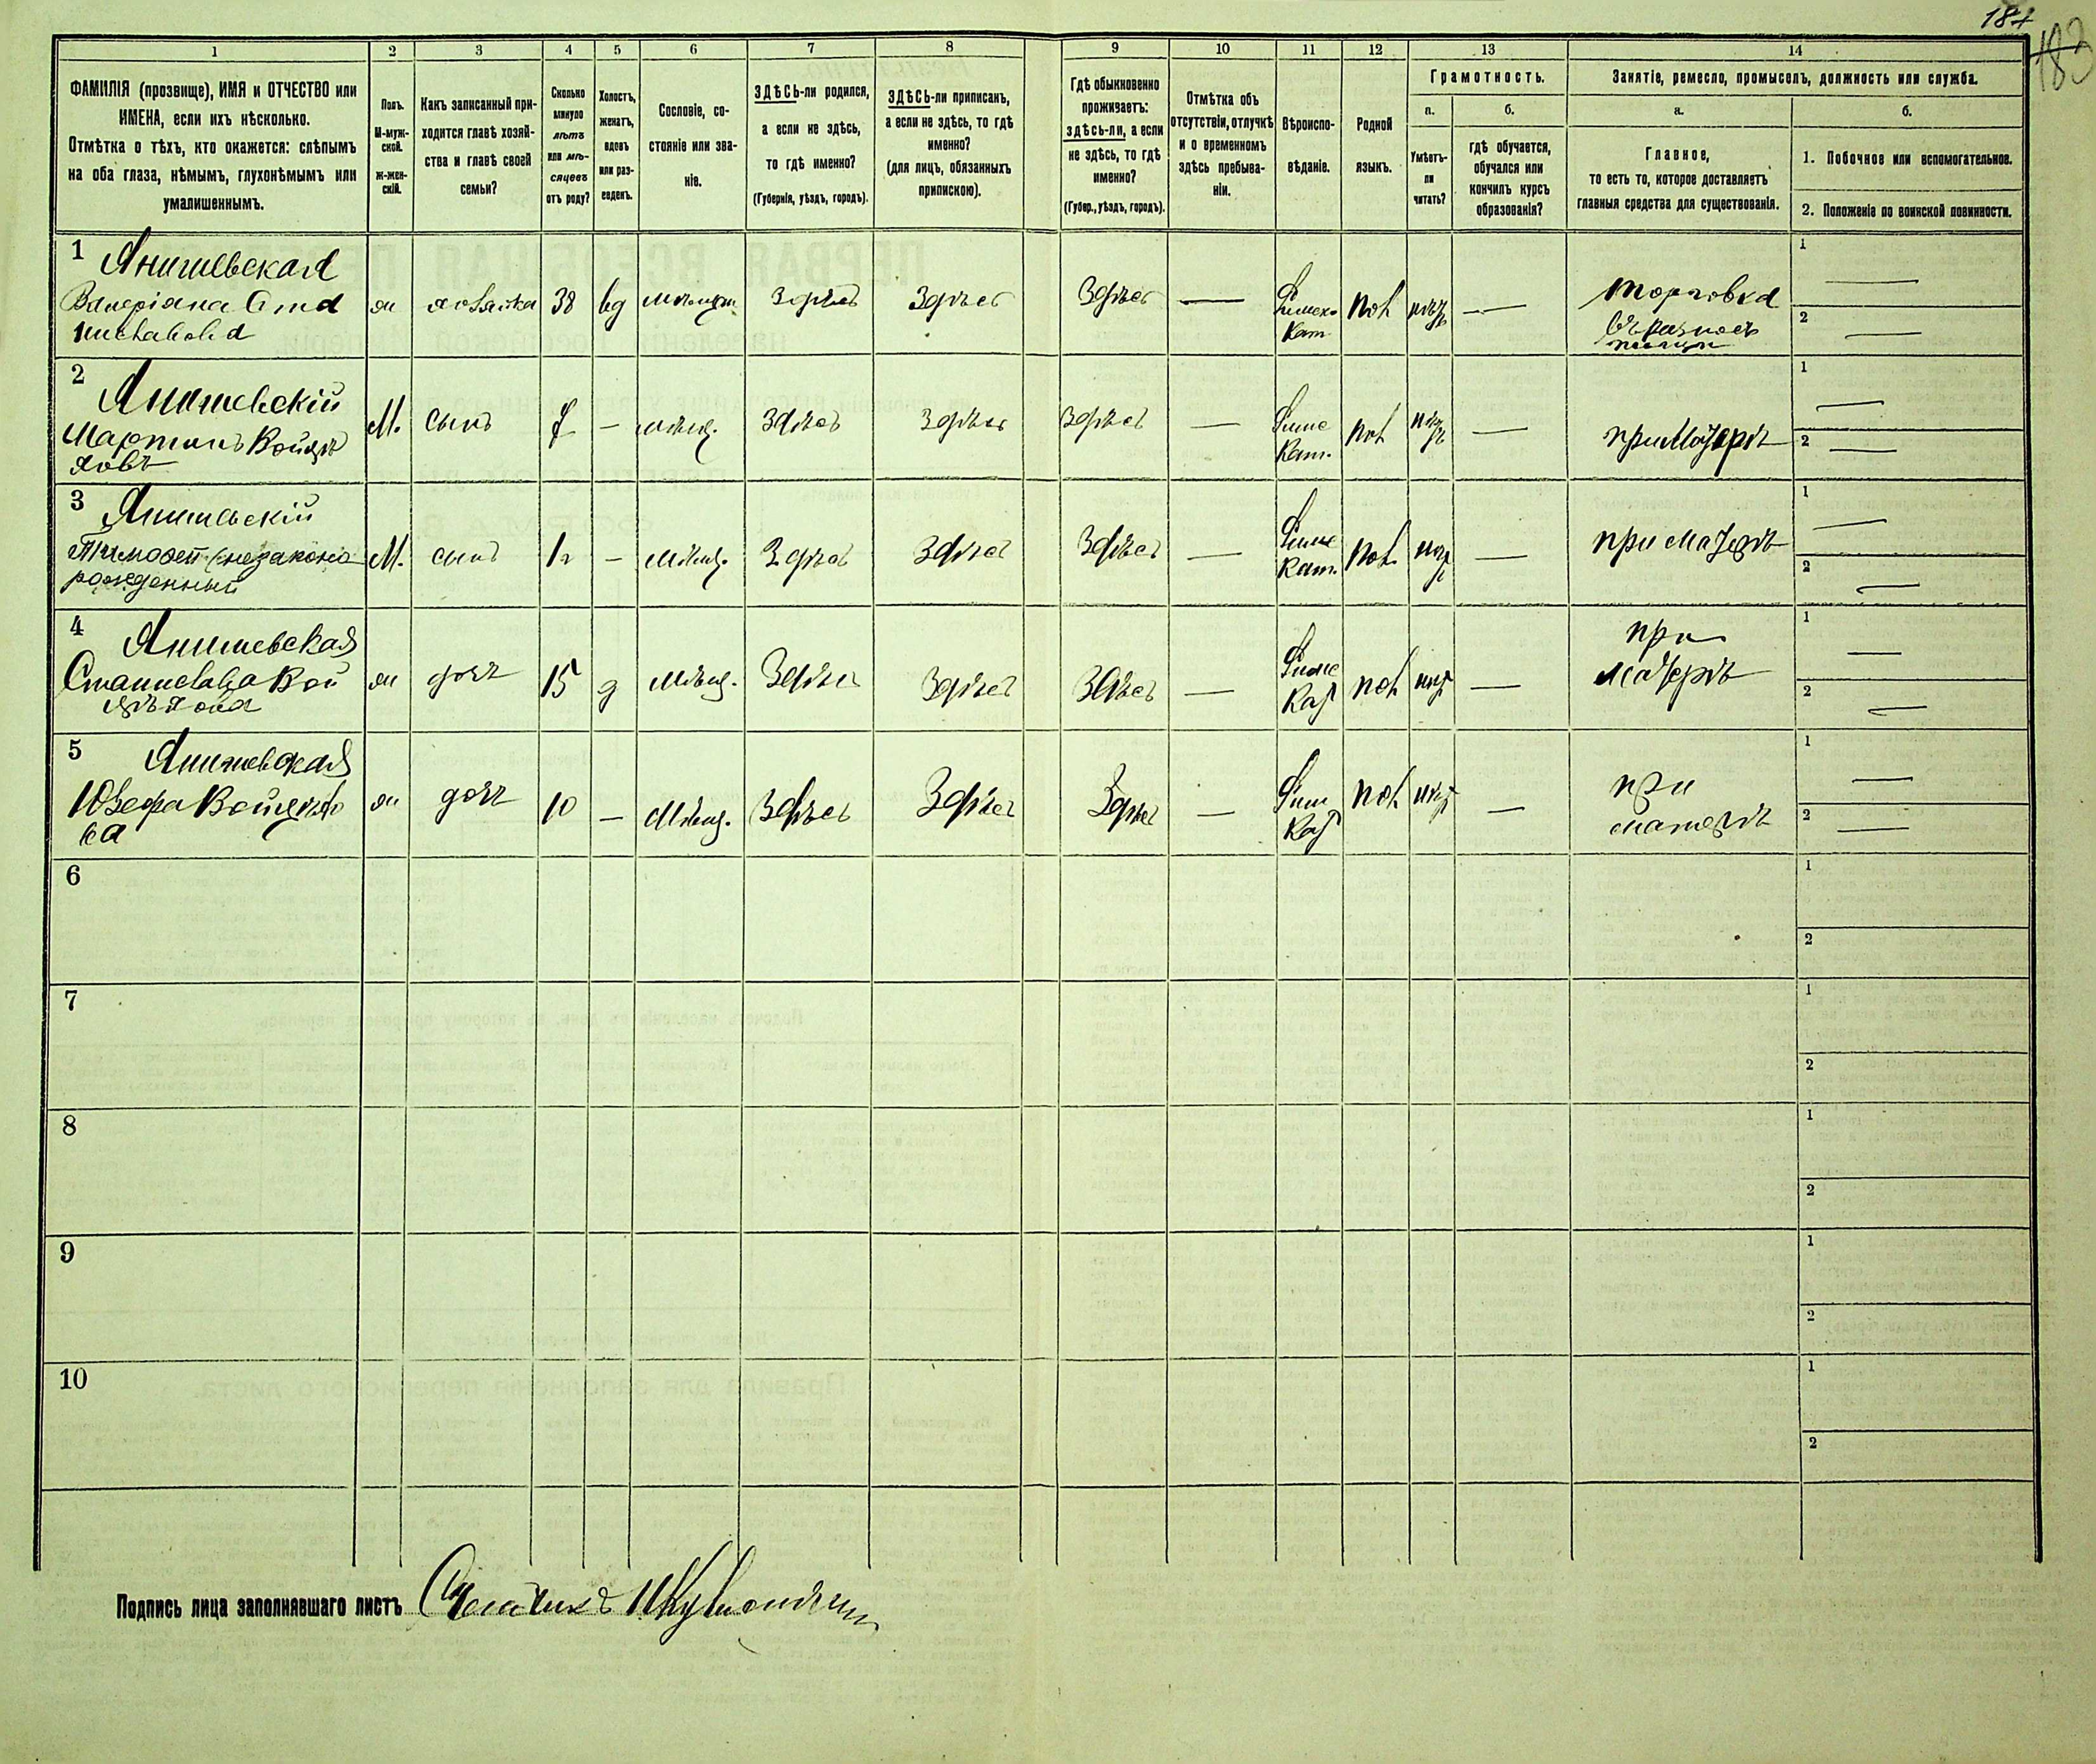 184
183
1
2
3
4
5
6
7
8
9
10
11
12
13
14
ФАМИЛІЯ (прозвище), ИМЯ и ОТЧЕСТВО или
ИМЕНА, если ихъ нѣсколько.
Отмѣтка о тѣхъ, кто окажется: слѣпымъ
на оба глаза, нѣмымъ, глухонѣмымъ или
умалишеннымъ.
Полъ.
М-муж-
ской.
ж-жен-
скій.
Какъ записанный при-
ходится главѣ хозяй-
ства и главѣ своей
семьи?
Сколько
минуло
лѣтъ
или мѣ-
сяцевъ
отъ роду?
Холостъ,
женатъ,
вдовъ
или раз-
веденъ.
Сословіе, со-
стояніе или зва-
ніе.
ЗДѢСЬ-ли родился,
а если не здѣсь,
то гдѣ именно?
(Губернія, уѣздъ, городъ).
ЗДѢСЬ-ли приписанъ,
а если не здѣсь, то гдѣ
именно?
(для лицъ, обязанныхъ
припискою).
Гдѣ обыкновенно
проживаетъ:
здѣсь-ли, а если
не здѣсь, то гдѣ
именно?
(Губер., уѣздъ, городъ).
Отмѣтка объ
отсутствіи, отлучкѣ
и о временномъ
здѣсь пребыва-
ніи.
Вѣроиспо-
вѣданіе.
Родной
языкъ.
Грамотность.
а.
б.
Умѣетъ-
ли
читать?
гдѣ обучается,
обучался или
кончилъ курсъ
образованія?
Занятіе, ремесло, промыселъ, должность или служба.
а.
б.
Главное,
то есть то, которое доставляетъ
главныя средства для существованія.
1. Побочное или вспомогательное.
2. Положеніе по воинской повинности.
1 Янишевская
Валеріана
38
вд
Здѣсь
Здѣсь
Здѣсь —
Кат.
пол
—
торговка
1 —
2 —
2 Янишевскій
Мартинъ Войцѣ
ховъ
М.
сынъ
—
мѣщ.
Здѣсь
Здѣсь
Здѣсь
—
Римс
Кат.
пол
—
при матерѣ
1 —
2 —
3 Янишевскій
Тимофей (незаконно
рожденный
М.
сынъ
—
мѣщ.
Здѣсь
Здѣсь
Здѣсь
—
Римс
Кат.
пол.
—
при матерѣ
1 —
2 —
4 Янишевская
Станислава Вой
цѣхова
ж
дочь
15
д
мѣщ.
Здѣсь
Здѣсь
Здѣсь
—
Римс
Кат
пол
—
при
матерѣ
1 —
2 —
5 Янишевская
Юзефа Войцѣхо
ва
ж
дочь
10
—
Мѣщ.
Здѣсь
Здѣсь
Здѣсь
—
Рим
Кат
пол
—
при
матерѣ
1 —
2 —
6
1
2
7
1
2
8
1
2
9
1
2
10
1
2
Подпись лица заполнявшаго листъ